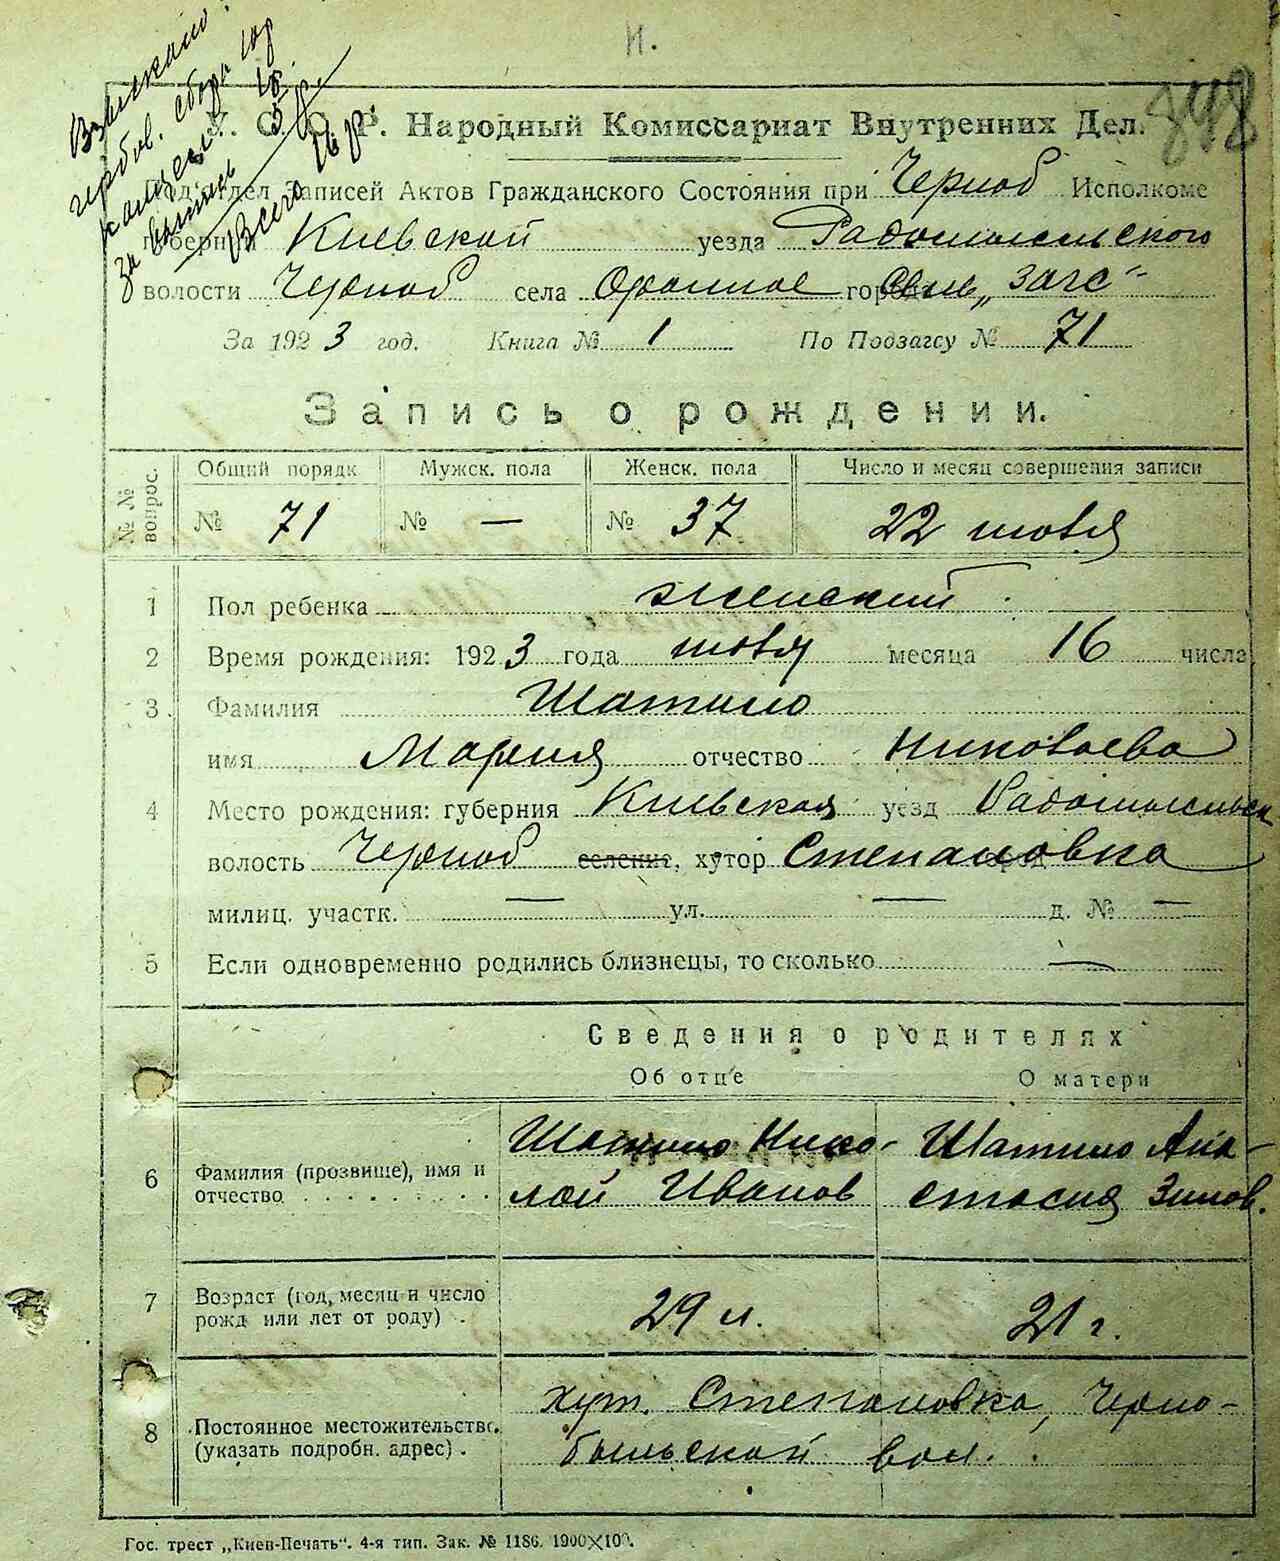 И.
848
Взыскано:
гербов. сбора 10р
канцел. 10
за бланк 5 р.
Всего
У. С. С. Р. Народный Комиссариат Внутренних Дел.
Подотдел Записей Актов Гражданского Состояния при Черноб Исполкоме
губернии Киевской уезда Радомысльского
волости Черноб села Оранное города „Загс“
За 1923 год. Книга № 1 По Подзагсу № 71
Запись о рождении.
№ № вопрос. Общий порядк Мужск. пола Женск. пола Число и месяц совершения записи
№ 71 № — № 37 22 июля
1 Пол ребенка женский
2 Время рождения: 1923 года июля месяца 16 числа
3. Фамилия Шатило
имя Мария отчество Николаева
4 Место рождения: губерния Киевская уезд Радомысльск
волость Черноб селение, хутор Степановка
милиц. участк. — ул. — д. № —
5 Если одновременно родились близнецы, то сколько —
Сведения о родителях
Об отце О матери
6 Фамилия (прозвище), имя и отчество Шатило Нико-лай Иванов Шатило Ана-стасия Зинов.
7 Возраст (год, месяц и число рожд или лет от роду) . 29 л. 21 г.
8 Постоянное местожительство. (указать подробн. адрес) . хут. Степановка, Черно-
быльской вол.
Гос. трест „Киев-Печать“. 4-я тип. Зак. № 1186. 1900×100.